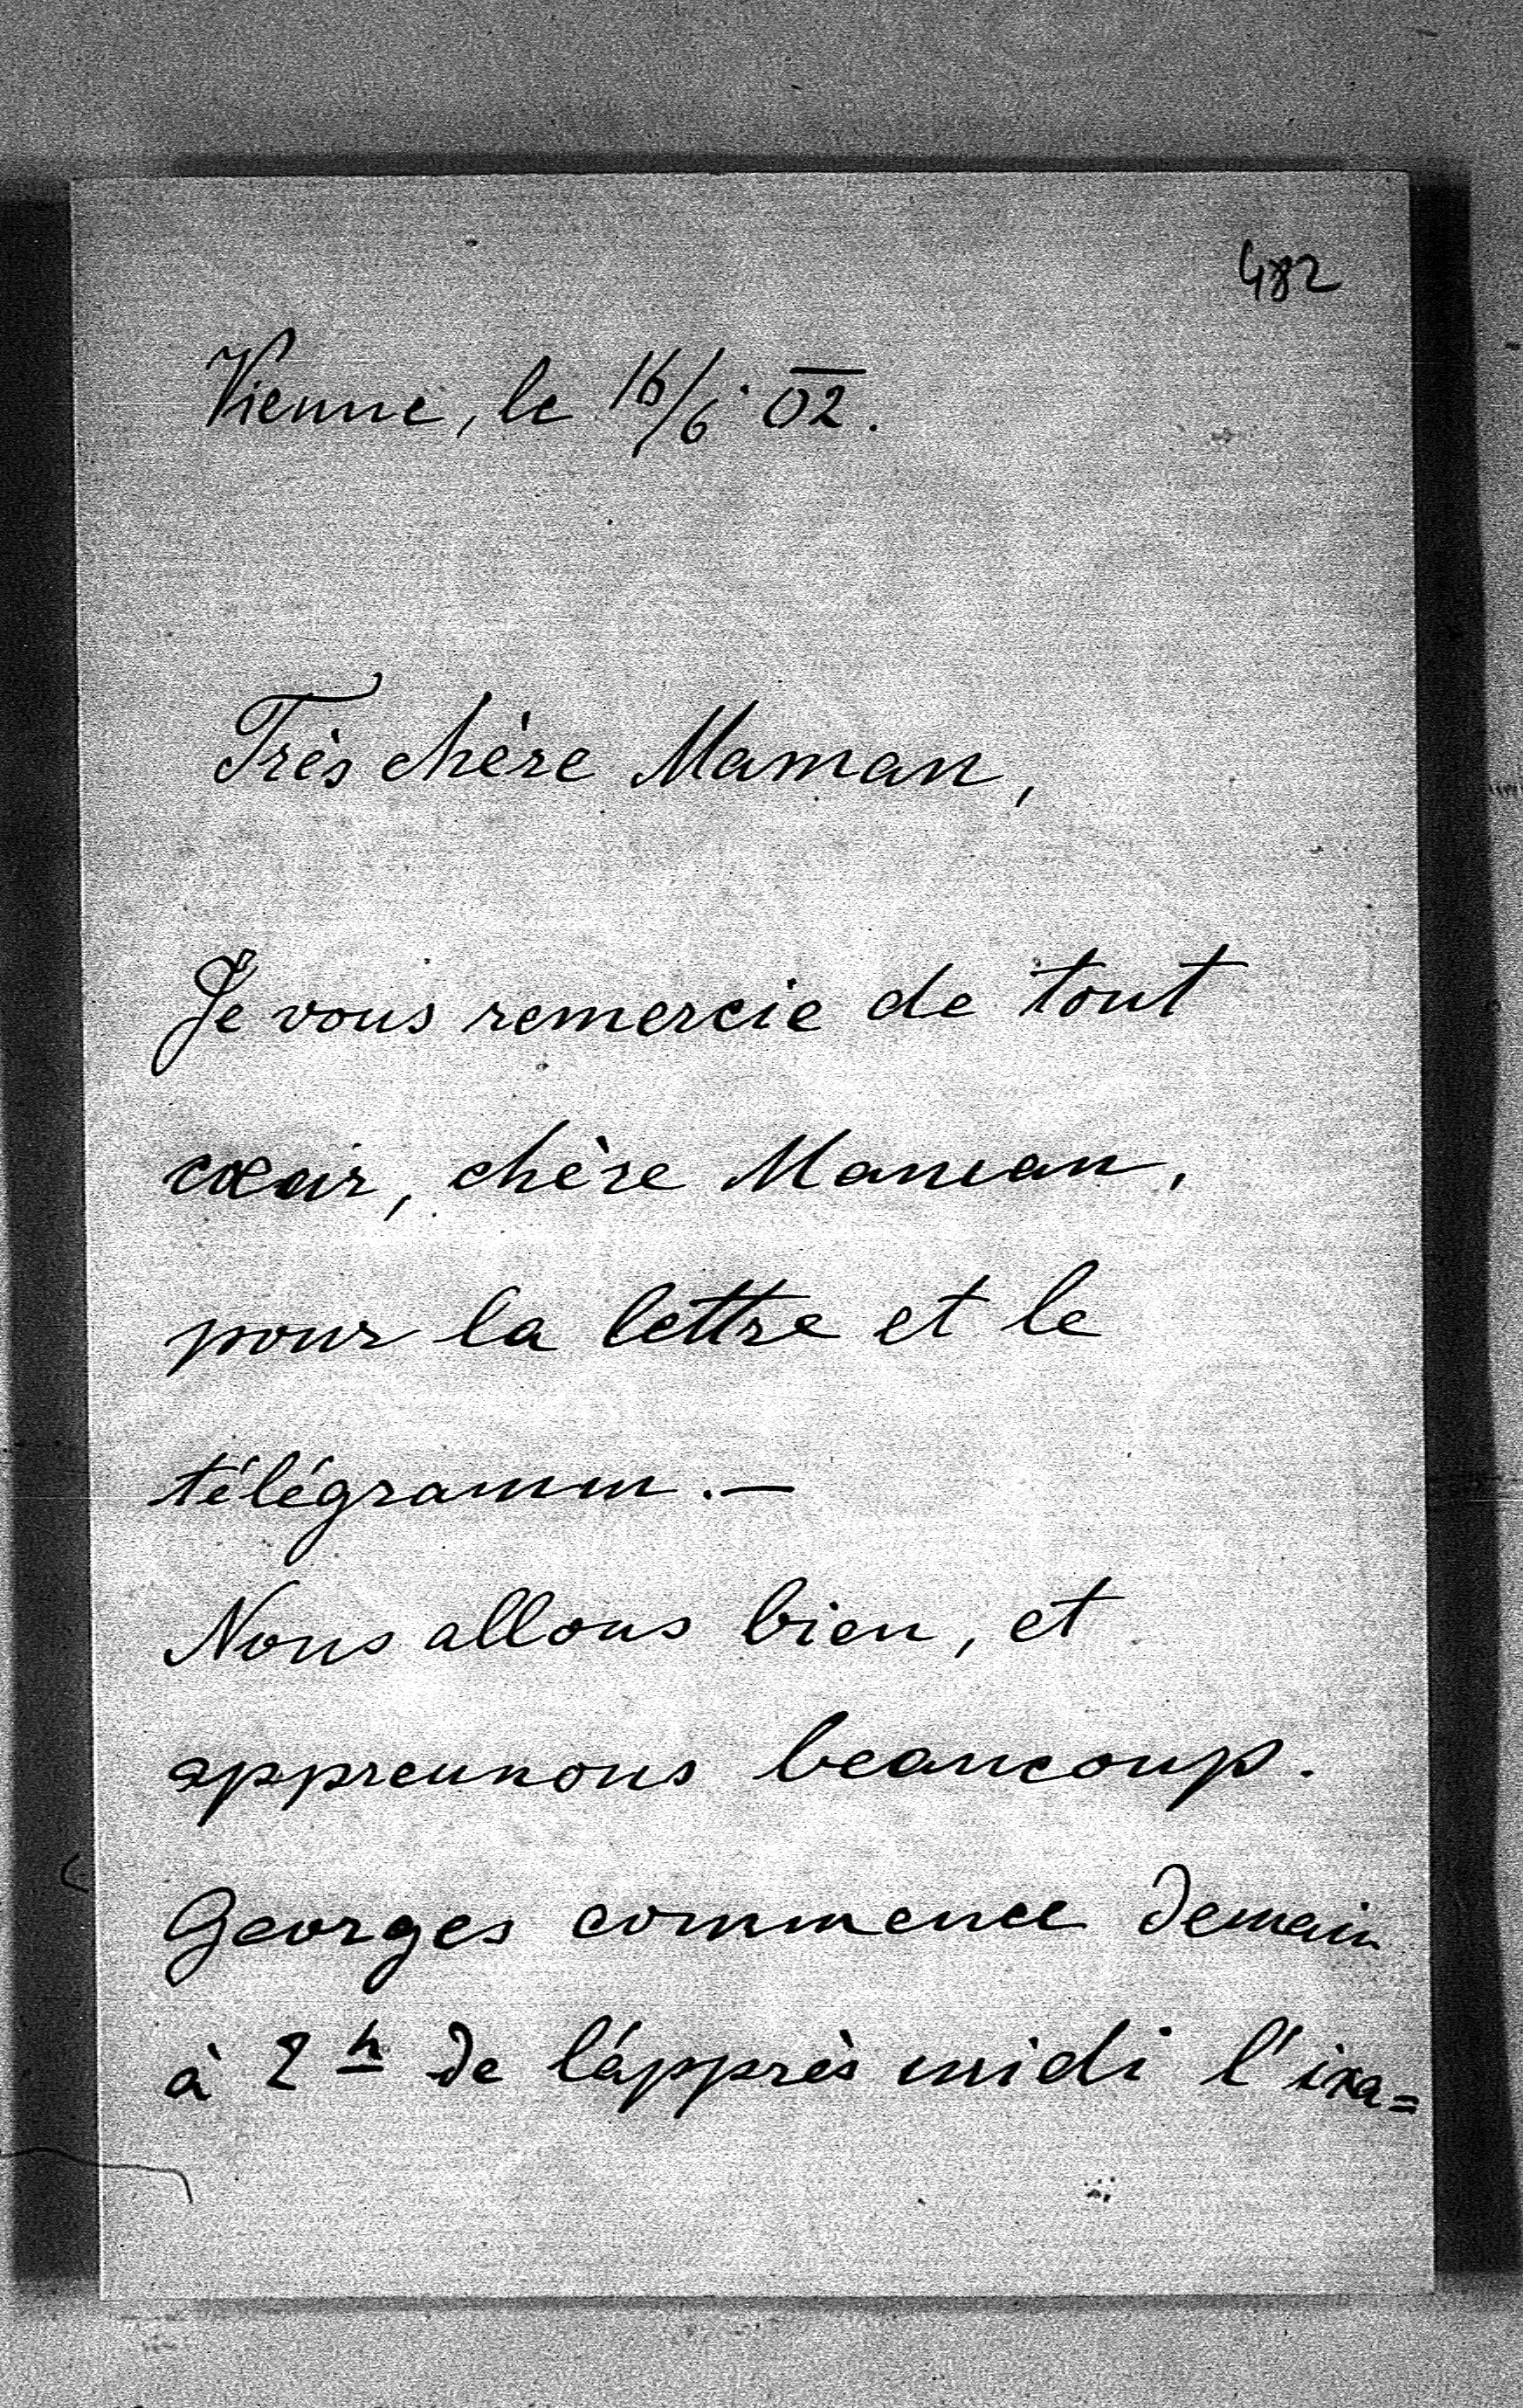 482
Vienne, le 16/6 02.
Très chère Maman,
Je vous remercie de tout
cœur, chère Maman,
pour la lettre et le
télégramm. —
Nous allons bien, et
apprennons beaucoup.
Georges commence demain
à 2 h de l'ápprès midi l'ixa=